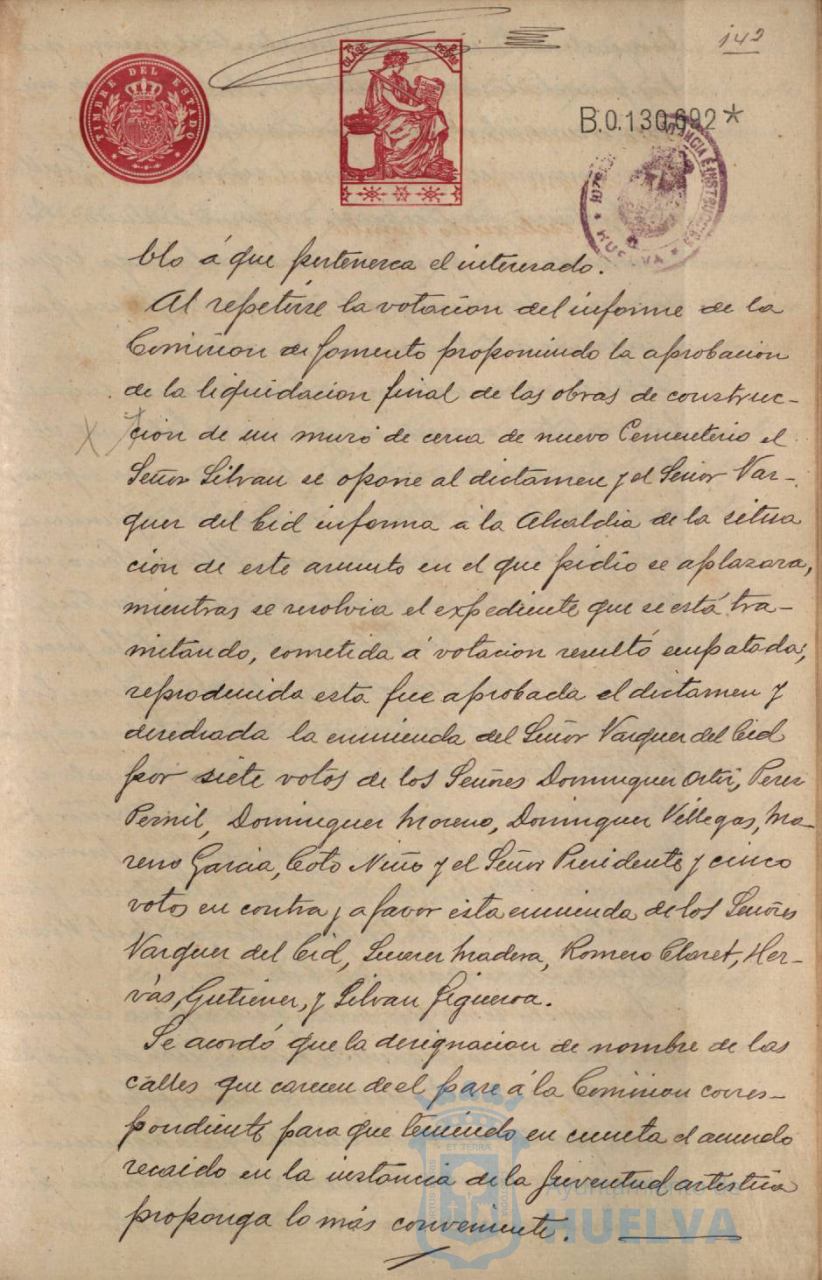 142
TIMBRE DEL ESTADO
7ª CLASE
B.0.130.692*
HUELVA
blo á que pertenezca el interesado.
Al repetirse la votacion del informe de la
Comision de fomento proponiendo la aprobacion
de la liquidacion final de las obras de construc-
ción de un muro de cerca de nuevo Cementerio el
Señor Silvan se opone al dictamen y el Señor Vaz-
quez del Cid informa á la Alcaldia de la situa
ción de este asunto en el que pidio se aplazara,
mientras se resolvia el expediente que se está tra-
mitando, sometida á votacion resultó empatada;
reproducida esta fue aprobada el dictamen y
desechada la enmienda del Señor Vazquez del Cid
por siete votos de los Señores Dominguez Ortiz, Perez
Pernil, Dominguez Moreno, Dominguez Villegas, Mo-
reno Garcia, Coto Niño y el Señor Presidente y cinco
votos en contra y a favor esta enmienda de los Señores
Vazquez del Cid, Suarez Madera, Romero Claret, Her-
vás, Gutierrez, y Silvan Figueroa.
Se acordó que la designacion de nombre de las
calles que carecen de el pase á la Comision corres-
pondiente para que teniendo en cuenta el acuerdo
recaido en la instancia de la Juventud artistica
proponga lo más conveniente.
Ayuntamiento de
HUELVA